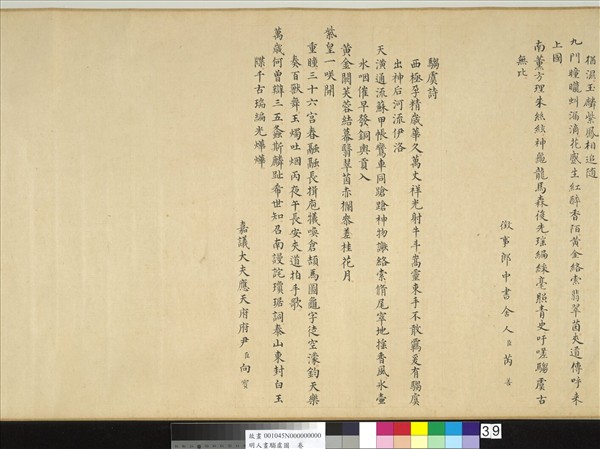 猶濕玉麟紫鳳相追隨
九門曈曨虯漏滴花底生紅醉香陌黃金絡索翡翠茵夾道傳呼來
上國
南薰方理朱絲絃神龜龍馬森後先瑤編綵毫照青史吁嗟騶虞古
無比
徵事郎中書舍人臣芮善
騶虞詩
西極孕精歲華久萬丈祥光射牛斗嵩靈束手不敢爾爰有騶虞
出神后河流伊洛
天潢通派蘇甲帳鸞車同蹌蹌神物讖絡索脩尾窣地搖香風氷壺
水咽催早發銅輿貢入
黃金闕芙蓉結幕翡翠茵赤欄參差桂花月
紫皇一咲開
重瞳三十六宮春融融長揖庖犧喚倉頡馬圖龜字徒空濛鈞天樂
奏百獸舞玉燭吐烟丙夜午長安夾道拍手歌
萬歲何曾辯三五螽斯麟趾希世知召南謾詫瓊琚詞泰山東封白玉
牒千古瑞編光燁燁
嘉議大夫應天府府尹臣向寶
故畫 001045N000000000
明人畫騶虞圖 卷
39